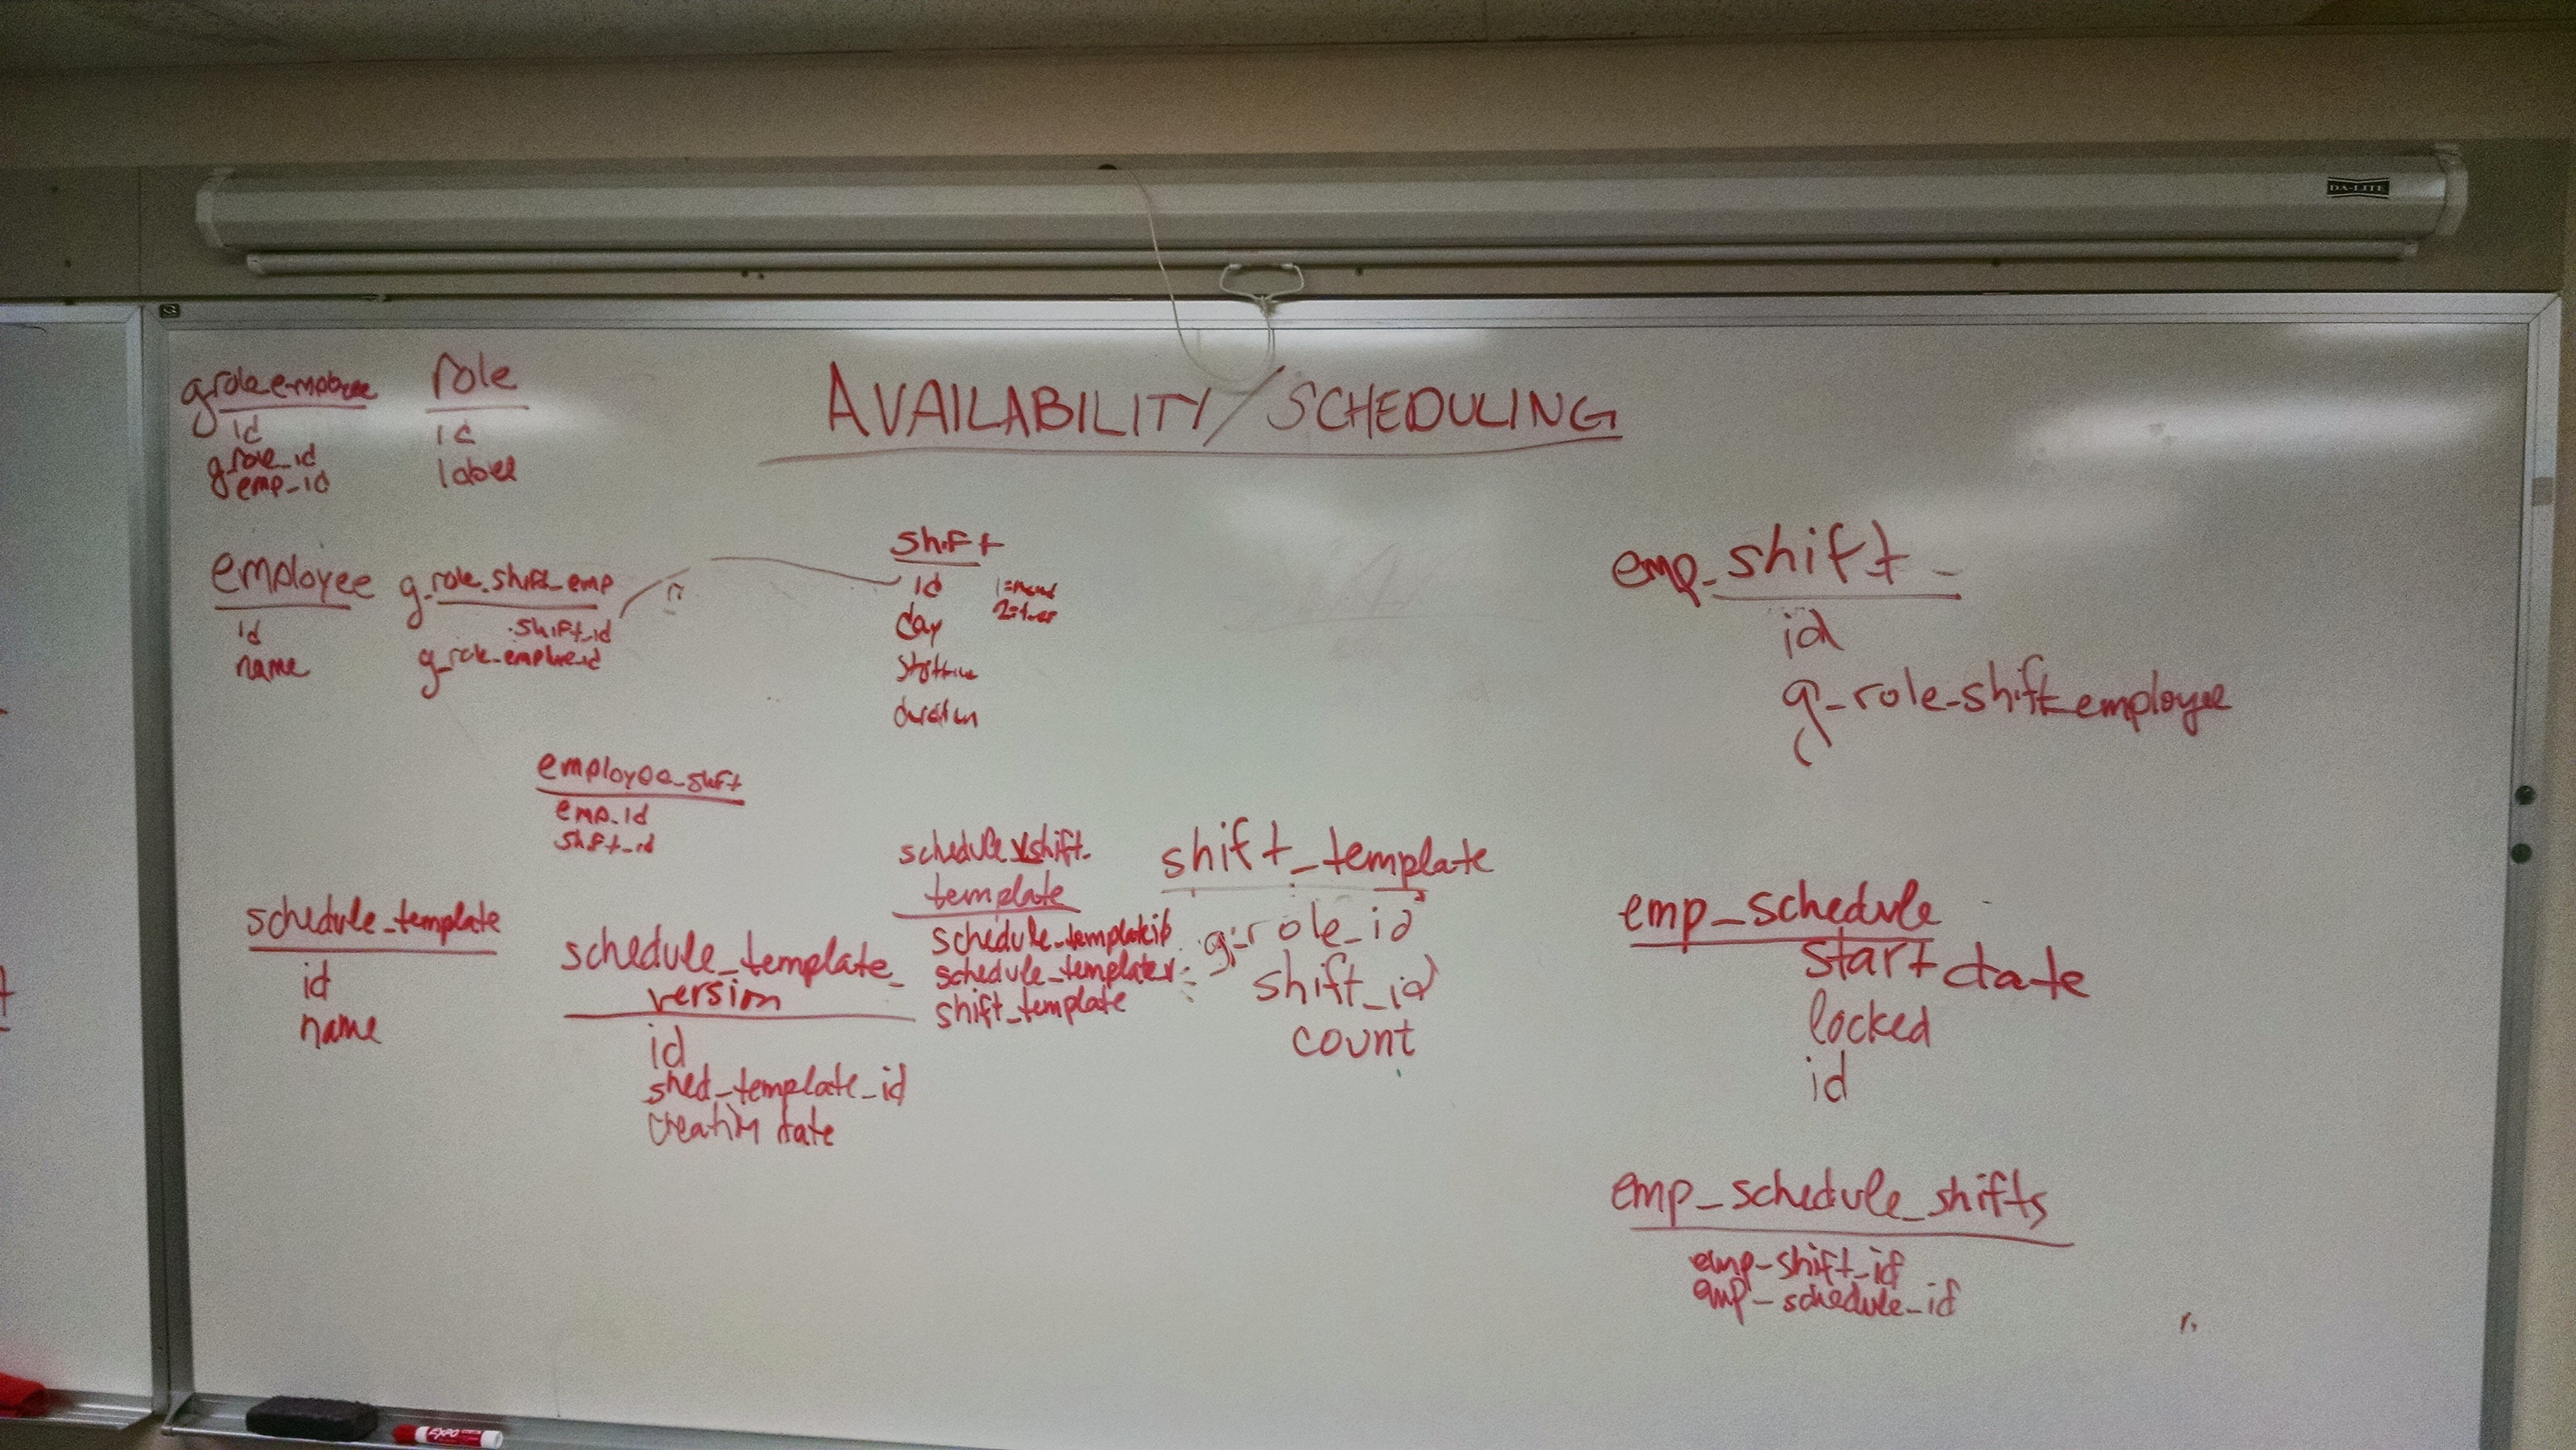 DA-LITE
AVAILABILITY/SCHEDULING
g role employee
id
g role_id
emp_id
role
id
label
employee
id
name
g_role_shift_emp
shift_id
shift
id
day
duration
1=mon
2=tues
emp_shift_
id
g_role_shift_employee
employee_shift
emp_id
shift_id
schedule_template
id
name
schedule_template_
version
id
shed_template_id
creation date
schedule v shift_
template
schedule_template id
schedule_template v
shift_template
shift_template
g_role_id
shift_id
count
emp_schedule
start date
locked
id
emp_schedule_shifts
emp_shift_id
emp_schedule_id
EXPO